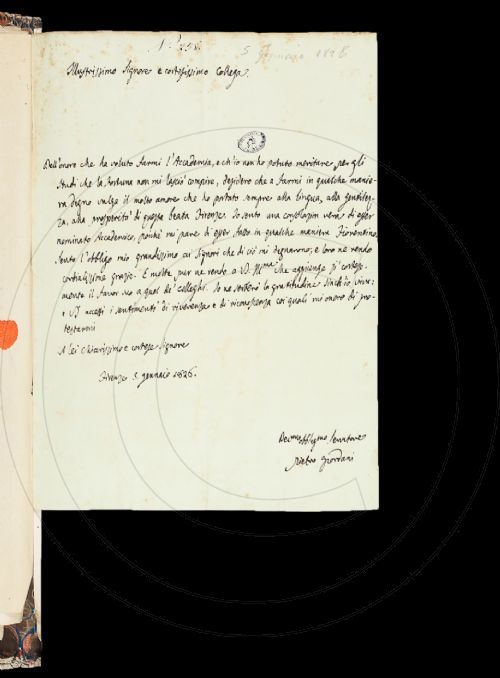 5 Gennaio 1826
Illustrissimo Signore e cortesissimo Collega
Dell'onore che ha voluto farmi l'Accademia, e ch'io non ho potuto meritare per gli
studi che la fortuna non mi lasciò compire, desidero che a farmi in qualche manie-
ra degno valga il molto amore che ho portato sempre alla lingua, alla gentilez-
za, alla prosperità di questa beata Firenze. Io sento una consolazion vera di esser
nominato Accademico, poiché mi pare di esser fatto in qualche maniera Fiorentino.
Sento l'obbligo mio grandissimo ai Signori che di ciò mi degnarono; e loro ne rendo
cordialissime grazie. E molte pur ne rendo a V. S. Illma che aggiunge sì cortese-
mente il favor suo a quel de' colleghi. Io ne serberò la gratitudine sinch'io viva:
e accetti i sentimenti di riverenza e di riconoscenza coi quali mi onoro di pro-
testarmi
A lei chiarissimo e cortese Signore
Firenze 5. gennaio 1826.
obblgmo servitore
Pietro Giordani